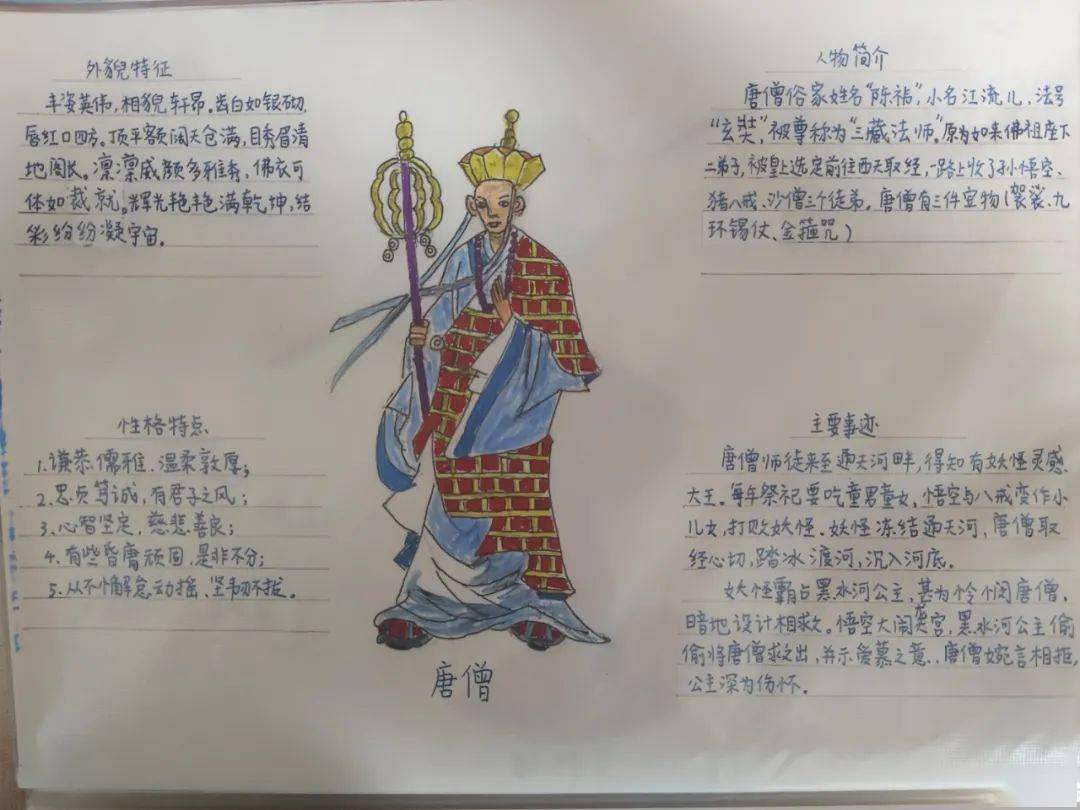 外貌特征
丰姿英伟,相貌轩昂。齿白如银砌,
唇红口四方。顶平额阔天仓满,目秀眉清
地阁长。凛凛威颜多雅秀,佛衣可
体如裁就。辉光艳艳满乾坤,结
彩纷纷凝宇宙。
人物简介
唐僧俗家姓名“陈祎”,小名江流儿,法号
“玄奘”,被尊称为“三藏法师”。原为如来佛祖座下
二弟子,被皇上选定前往西天取经,一路上收了孙悟空、
猪八戒、沙僧三个徒弟。唐僧有三件宝物(袈裟、九
环锡仗、金箍咒)
性格特点
1.谦恭儒雅、温柔敦厚;
2.忠贞笃诚,有君子之风;
3.心智坚定,慈悲善良;
4.有些昏庸顽固,是非不分;
5.从不懈怠动摇、坚韧不拔。
主要事迹
唐僧师徒来至通天河畔,得知有妖怪灵感
大王。每年祭祀要吃童男童女,悟空与八戒变作小
儿女,打败妖怪。妖怪冻结通天河,唐僧取
经心切,踏冰渡河,沉入河底。
妖怪霸占黑水河公主,甚为怜悯唐僧,
暗地设计相救。悟空大闹宫,黑水河公主偷
偷将唐僧救出,并示爱慕之意,唐僧婉言相拒,
公主深为伤怀。
唐僧